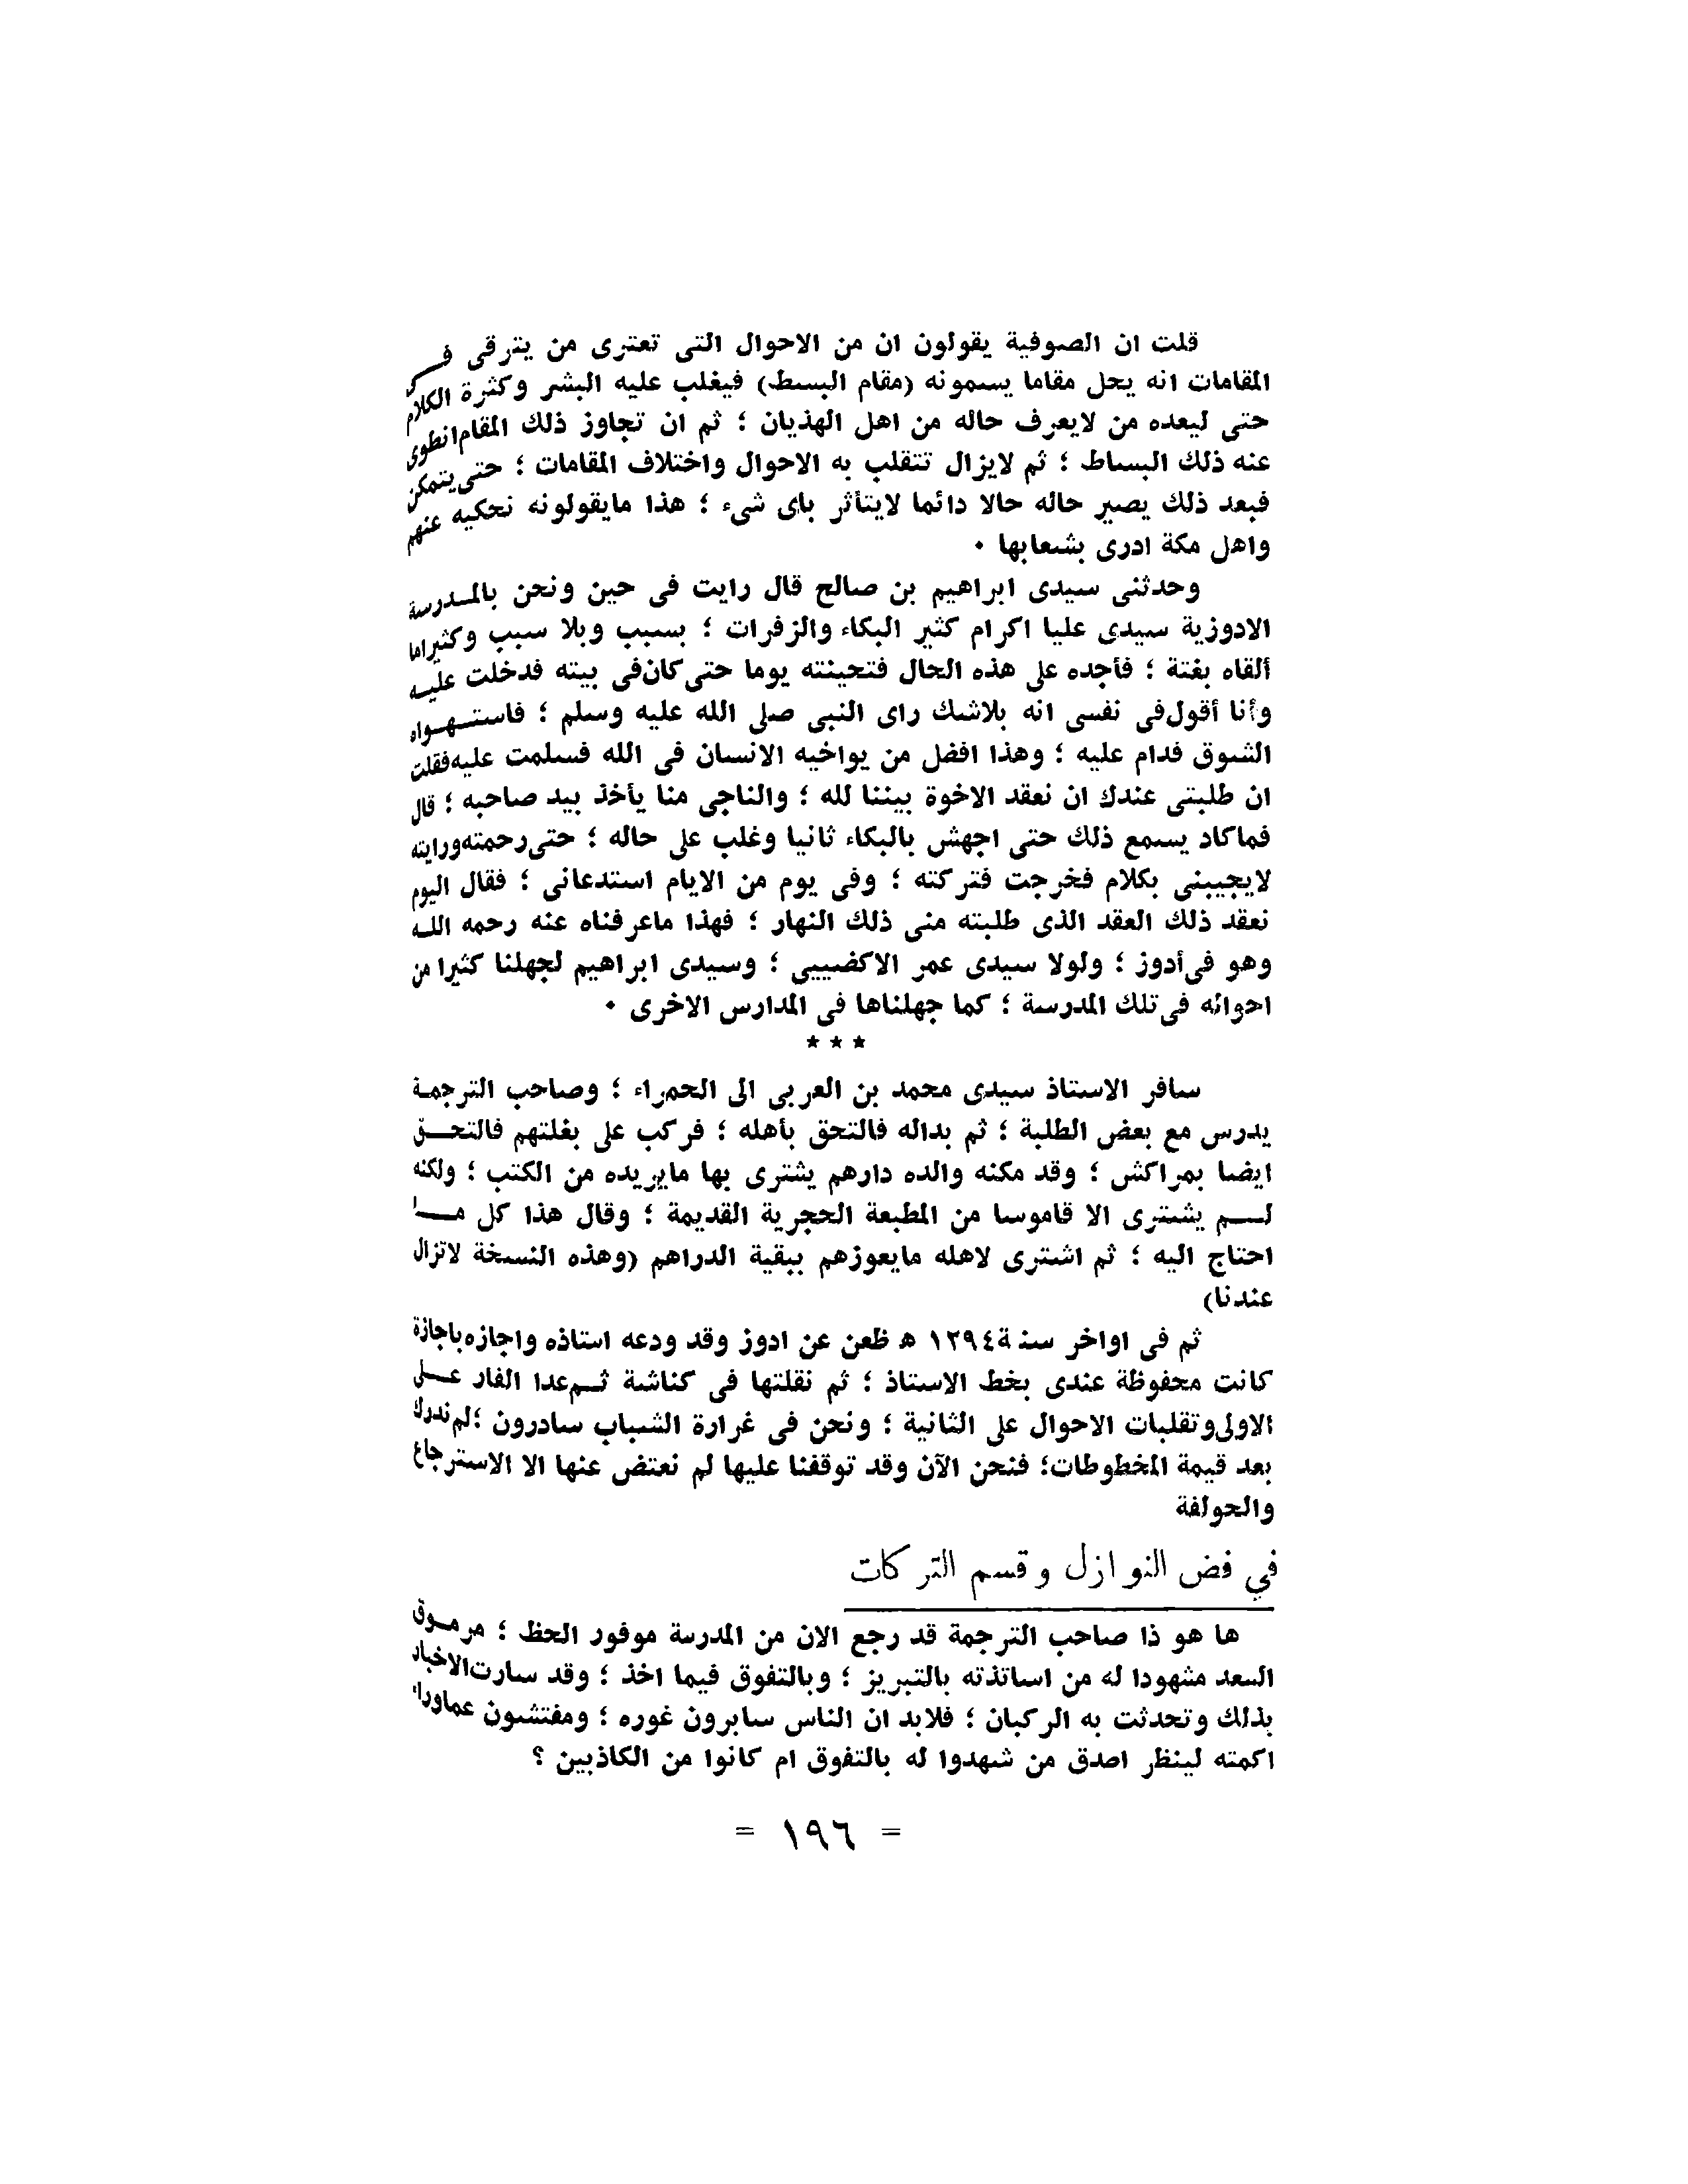 قلت ان الصوفية يقولون ان من الاحوال التى تعترى من يترقى فى
المقامات انه يحل مقاما يسمونه (مقام البسط) فيغلب عليه البشر وكثرة الكلام
حتى ليعده من لايعرف حاله من اهل الهذيان ؛ ثم ان تجاوز ذلك المقام انطوى
عنه ذلك البساط ؛ ثم لايزال تتقلب به الاحوال واختلاف المقامات ؛ حتى يتمكن
فبعد ذلك يصير حاله حالا دائما لايتأثر باى شىء ؛ هذا مايقولونه نحكيه عنهم
واهل مكة ادرى بشعابها ٠
وحدثنى سيدى ابراهيم بن صالح قال رايت فى حين ونحن بالمدرسة
الادوزية سيدى عليا اكرام كثير البكاء والزفرات ؛ بسبب وبلا سبب وكثيراما
ألقاه بغتة ؛ فأجده على هذه الحال فتحينته يوما حتى كان فى بيته فدخلت عليه
وأنا أقول فى نفسى انه بلاشك راى النبى صلى الله عليه وسلم ؛ فاستهواه
الشوق فدام عليه ؛ وهذا افضل من يواخيه الانسان فى الله فسلمت عليه فقلت
ان طلبتى عندك ان نعقد الاخوة بيننا لله ؛ والناجى منا يأخذ بيد صاحبه ؛ قال
فماكاد يسمع ذلك حتى اجهش بالبكاء ثانيا وغلب على حاله ؛ حتى رحمته ورايته
لايجيبنى بكلام فخرجت فتركته ؛ وفى يوم من الايام استدعانى ؛ فقال اليوم
نعقد ذلك العقد الذى طلبته منى ذلك النهار ؛ فهذا ماعرفناه عنه رحمه الله
وهو فى أدوز ؛ ولولا سيدى عمر الاكضييى ؛ وسيدى ابراهيم لجهلنا كثيرا من
احواله فى تلك المدرسة ؛ كما جهلناها فى المدارس الاخرى ٠
* * *
سافر الاستاذ سيدى محمد بن العربى الى الحمراء ؛ وصاحب الترجمة
يدرس مع بعض الطلبة ؛ ثم بداله فالتحق بأهله ؛ فركب على بغلتهم فالتحق
ايضا بمراكش ؛ وقد مكنه والده دارهم يشترى بها مايريده من الكتب ؛ ولكنه
لم يشترى الا قاموسا من المطبعة الحجرية القديمة ؛ وقال هذا كل ما
احتاج اليه ؛ ثم اشترى لاهله مايعوزهم ببقية الدراهم (وهذه النسخة لاتزال
عندنا)
ثم فى اواخر سنة ١٢٩٤ ه ظعن عن ادوز وقد ودعه استاذه واجازه باجازة
كانت محفوظة عندى بخط الاستاذ ؛ ثم نقلتها فى كناشة ثم عدا الفار على
الاولى وتقلبات الاحوال على الثانية ؛ ونحن فى غرارة الشباب سادرون ؛ لم ندرك
بعد قيمة المخطوطات؛ فنحن الآن وقد توقفنا عليها لم نعتض عنها الا الاسترجاع
والحولقة
في فض النوازل وقسم التركات
ها هو ذا صاحب الترجمة قد رجع الان من المدرسة موفور الحظ ؛ مرموق
السعد مشهودا له من اساتذته بالتبريز ؛ وبالتفوق فيما اخذ ؛ وقد سارت الاخبار
بذلك وتحدثت به الركبان ؛ فلابد ان الناس سابرون غوره ؛ ومفتشون عماوراء
اكمته لينظر اصدق من شهدوا له بالتفوق ام كانوا من الكاذبين ؟
= ١٩٦ =